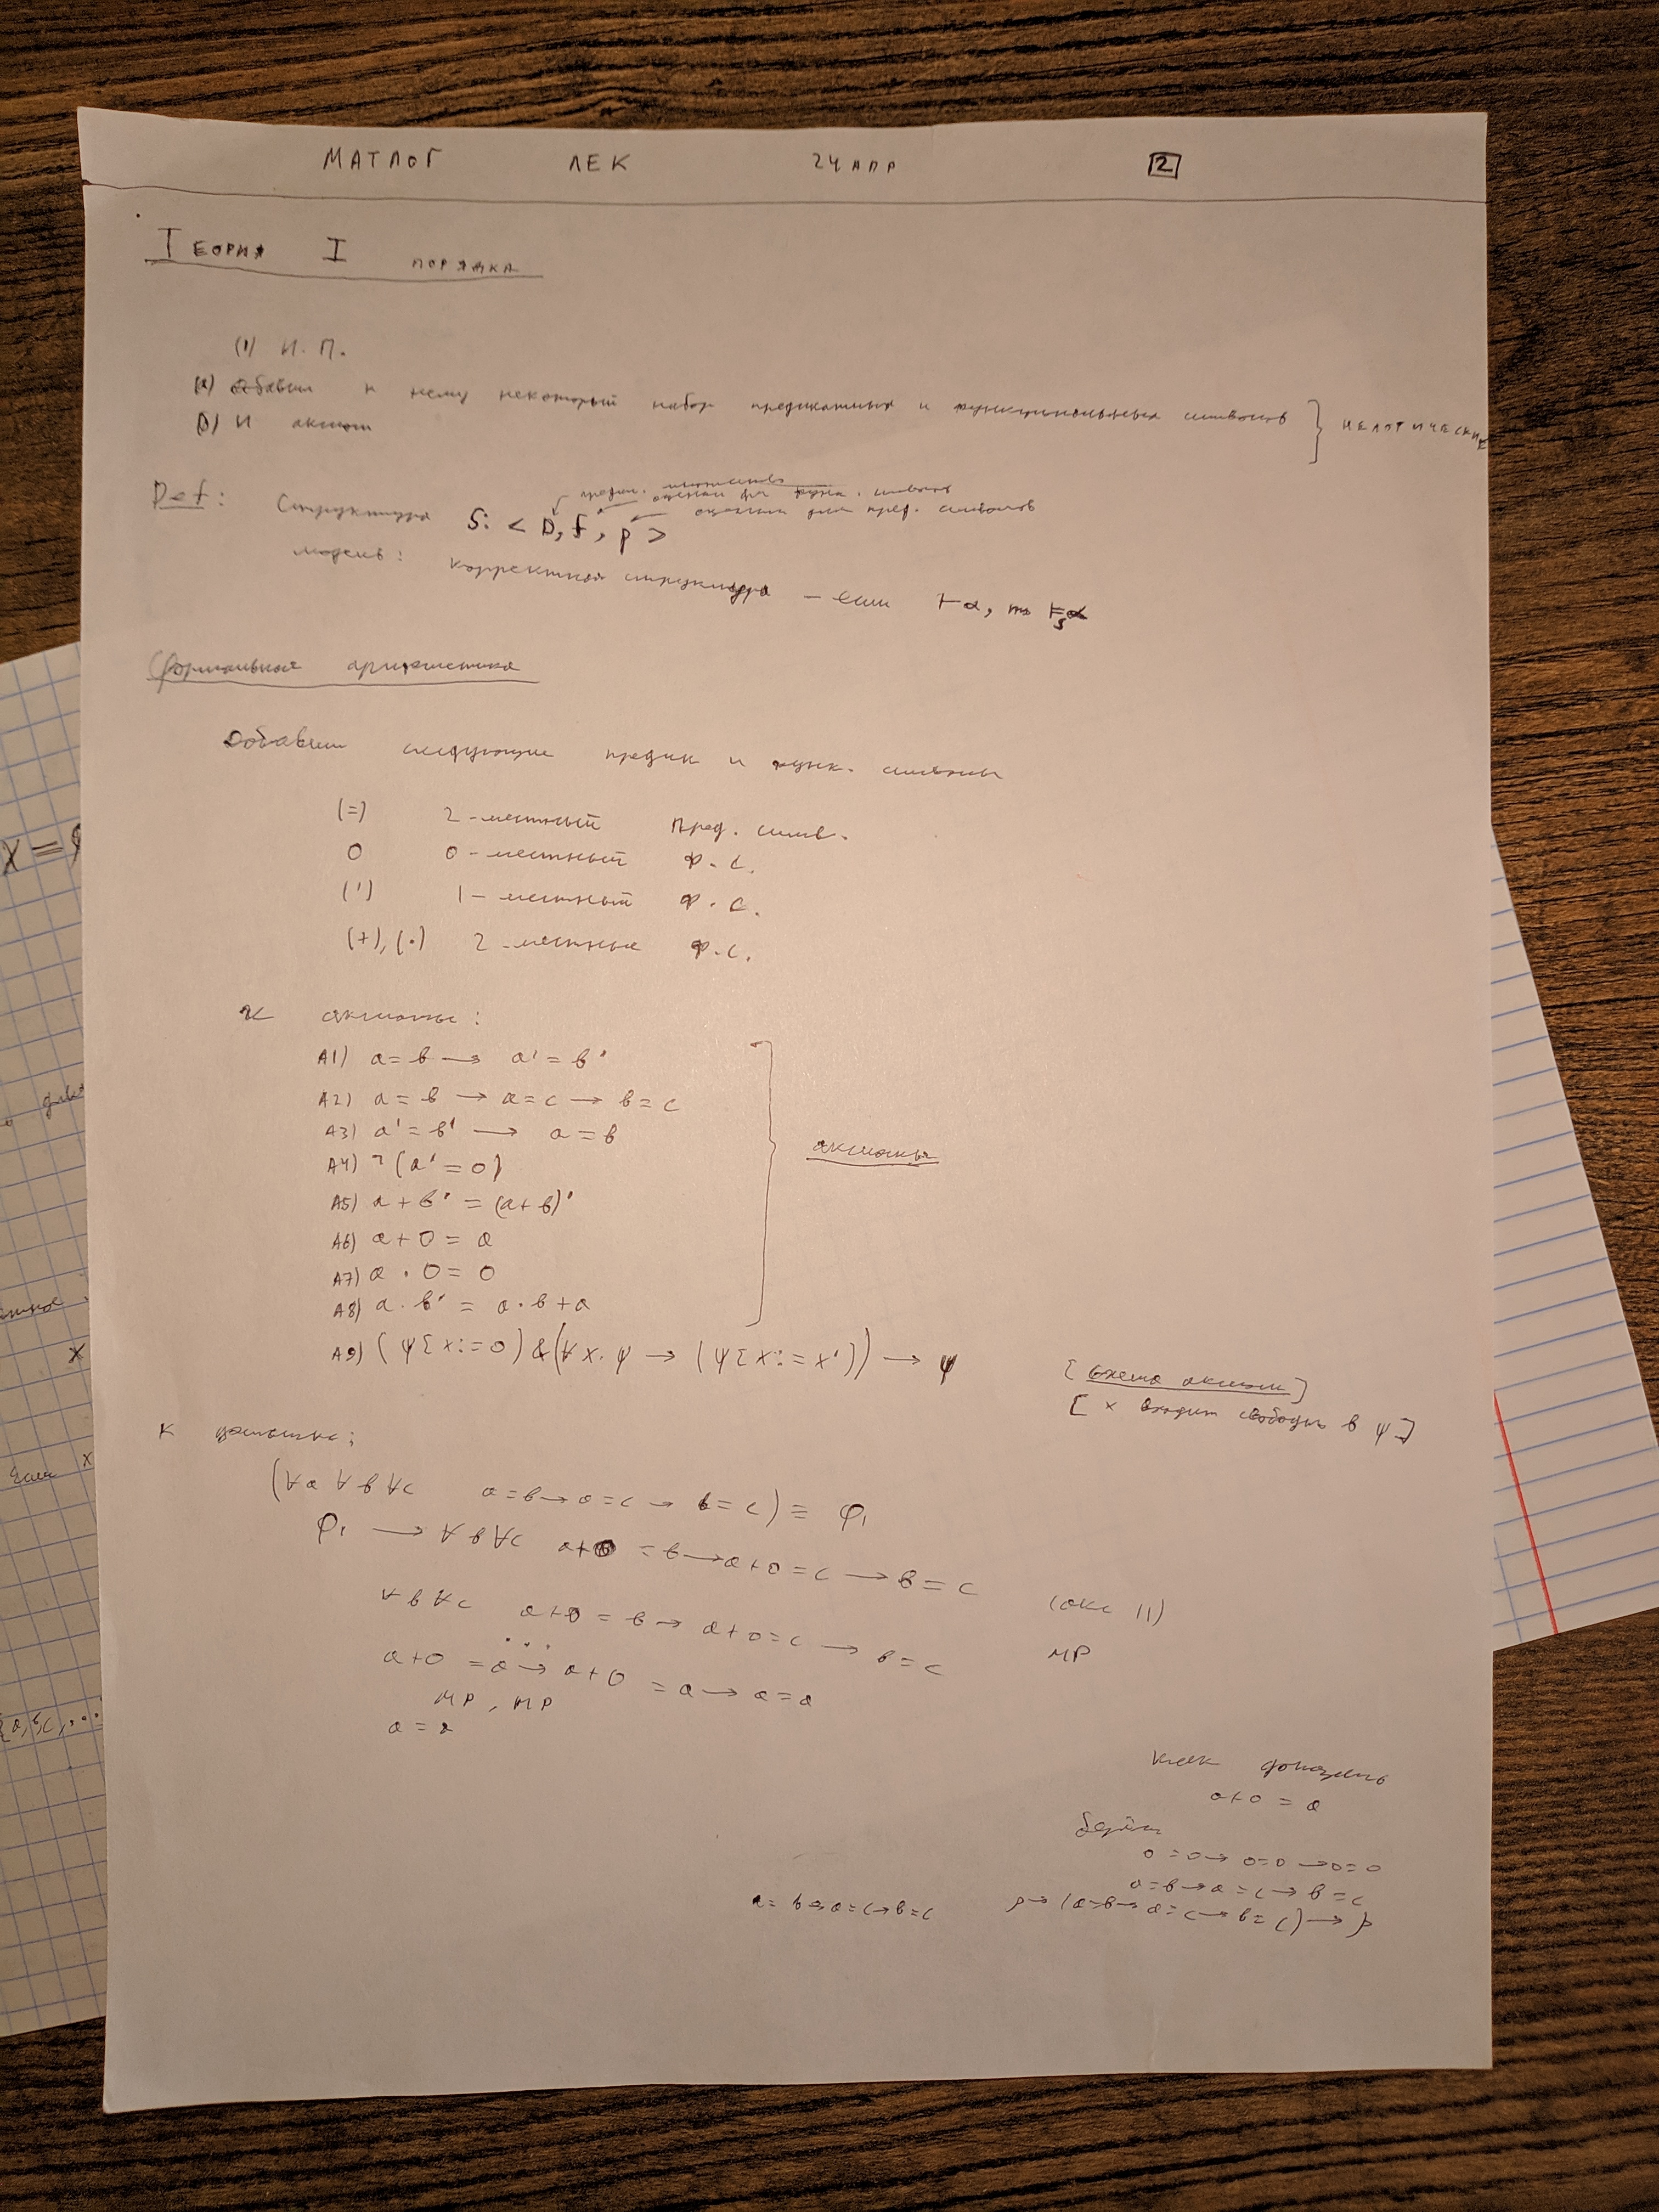 МАТЛОГ ЛЕК 24 АПР 2
ТЕОРИЯ I ПОРЯДКА
(1) И. П.
(2) добавим к нему некоторый набор предикатных и функциональных символов } НЕЛОГИЧЕСКИЕ
(3) И аксиом
Def: Структура S: < D, f, p >
предм. множество
оценки для функ. символов
оценки для пред. символов
модель: корректная структура – если ⊢α, то ⊨ₛα
Формальная арифметика
Добавим следующие предик и функ. символы
(=) 2-местный Пред. симв.
0 0-местный Ф.С.
(') 1-местный Ф.С.
(+), (·) 2-местные Ф.С.
И аксиомы:
A1) a = b → a' = b'
A2) a = b → a = c → b = c
A3) a' = b' → a = b
A4) ¬(a' = 0)
A5) a + b' = (a+b)'
A6) a + 0 = a
A7) a · 0 = 0
A8) a · b' = a · b + a
аксиомы
A9) (ψ[x:=0) & (∀x. ψ → (ψ[x:=x')) → ψ [схема аксиом]
[x входит свободно в ψ]
К
(∀a ∀b ∀c a=b → a=c → b=c) = φ₁
φ₁ → ∀b∀c a+0 = b → a+0 = c → b = c (акс 11)
∀b∀c a+0 = b → a+0 = c → b = c MP
...
a+0 = a → a+0 = a → a = a
MP, MP
a = a
как доказать
a+0 = a
берём
0=0 → 0=0 → 0=0
a=b → a=c → b=c
a = b → a=c → b=c p → (a=b → a=c → b=c) → p
x =
x
x